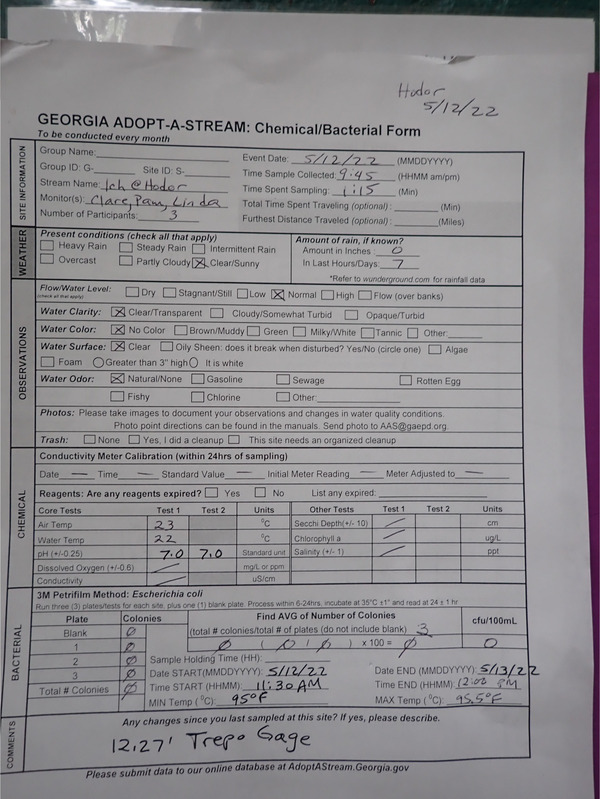 Hodor
5/12/22
GEORGIA ADOPT-A-STREAM: Chemical/Bacterial Form
To be conducted every month
SITE INFORMATION
Group Name:
Group ID: G- Site ID: S-
Stream Name: Ich @ Hodor
Monitor(s): Clare, Pam, Linda
Number of Participants: 3
Event Date: 5/12/22 (MMDDYYYY)
Time Sample Collected: 9:45 (HHMM am/pm)
Time Spent Sampling: 1:15 (Min)
Total Time Spent Traveling (optional): (Min)
Furthest Distance Traveled (optional): (Miles)
WEATHER
Present conditions (check all that apply)
Heavy Rain Steady Rain Intermittent Rain
Overcast Partly Cloudy Clear/Sunny
Amount of rain, if known?
Amount in Inches 0
In Last Hours/Days: 7
*Refer to wunderground.com for rainfall data
OBSERVATIONS
Flow/Water Level: Dry Stagnant/Still Low Normal High Flow (over banks)
(check all that apply)
Water Clarity: Clear/Transparent Cloudy/Somewhat Turbid Opaque/Turbid
Water Color: No Color Brown/Muddy Green Milky/White Tannic Other:
Water Surface: Clear Oily Sheen: does it break when disturbed? Yes/No (circle one) Algae
Foam Greater than 3" high It is white
Water Odor: Natural/None Gasoline Sewage Rotten Egg
Fishy Chlorine Other:
Photos: Please take images to document your observations and changes in water quality conditions.
Photo point directions can be found in the manuals. Send photo to AAS@gaepd.org.
Trash: None Yes, I did a cleanup This site needs an organized cleanup
CHEMICAL
Conductivity Meter Calibration (within 24hrs of sampling)
Date — Time — Standard Value — Initial Meter Reading — Meter Adjusted to —
Reagents: Are any reagents expired? Yes No List any expired:
Core Tests Test 1 Test 2 Units Other Tests Test 1 Test 2 Units
Air Temp 23 °C Secchi Depth(+/- 10) / cm
Water Temp 22 °C Chlorophyll a / ug/L
pH (+/-0.25) 7.0 7.0 Standard unit Salinity (+/- 1) / ppt
Dissolved Oxygen (+/-0.6) / mg/L or ppm
Conductivity / uS/cm
BACTERIAL
3M Petrifilm Method: Escherichia coli
Run three (3) plates/tests for each site, plus one (1) blank plate. Process within 6-24hrs, incubate at 35°C ±1° and read at 24 ± 1 hr
Plate Colonies
Blank Ø
1 Ø
2 Ø
3 Ø
Total # Colonies Ø
Find AVG of Number of Colonies
(total # colonies/total # of plates (do not include blank) 3
Ø ( Ø / Ø ) x 100 = Ø
cfu/100mL
0
Sample Holding Time (HH):
Date START(MMDDYYYY): 5/12/22 Date END (MMDDYYYY): 5/13/22
Time START (HHMM): 11:30 AM Time END (HHMM): 12:02 PM
MIN Temp (°C): 95°F MAX Temp (°C): 95.5°F
COMMENTS
Any changes since you last sampled at this site? If yes, please describe.
12.27' Trepo Gage
Please submit data to our online database at AdoptAStream.Georgia.gov